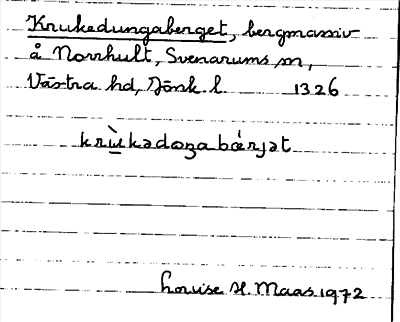 Krukedungaberget, bergmassiv
å Norrhult, Svenarums sn,
Västra hd, Jönk. l. 1326
krùkədoŋabǽrjət
Louise H. Maas 1972